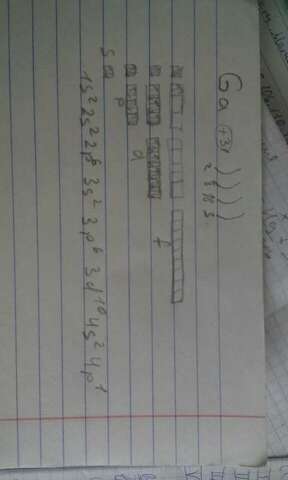 Ga +31 ) ) ) )
2 8 18 3
f
d
p
s
1s² 2s² 2p⁶ 3s² 3p⁶ 3d¹⁰ 4s² 4p¹